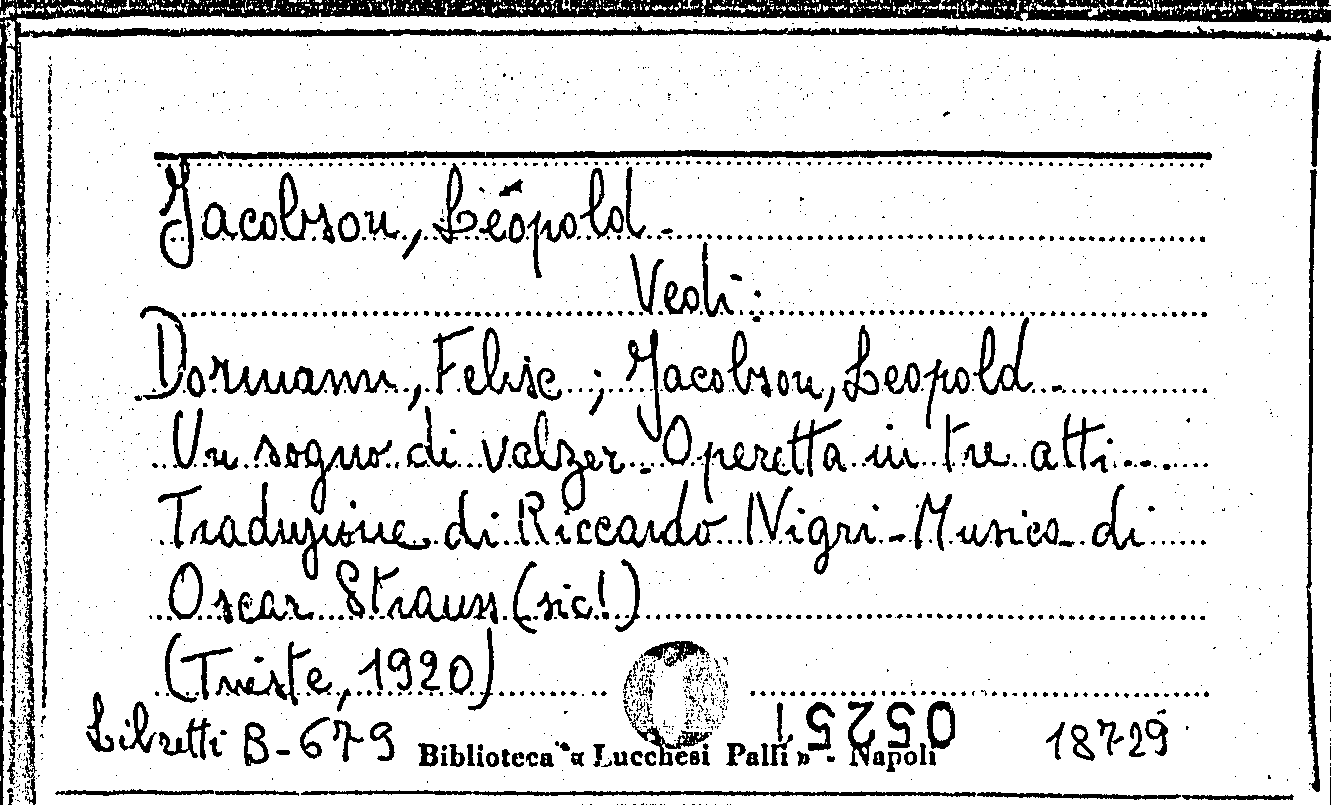 Jacobson, Léopold -
Vedi:
Dormann, Felise ; Jacobson, Leopold -
Un sogno di valzer - Operetta in tre atti...
Traduzione di Riccardo Nigri - Musica di
Oscar Strauss (sic!)
(Trieste, 1920)
Libretti B-679
05251
18729
Biblioteca « Lucchesi Palli » - Napoli